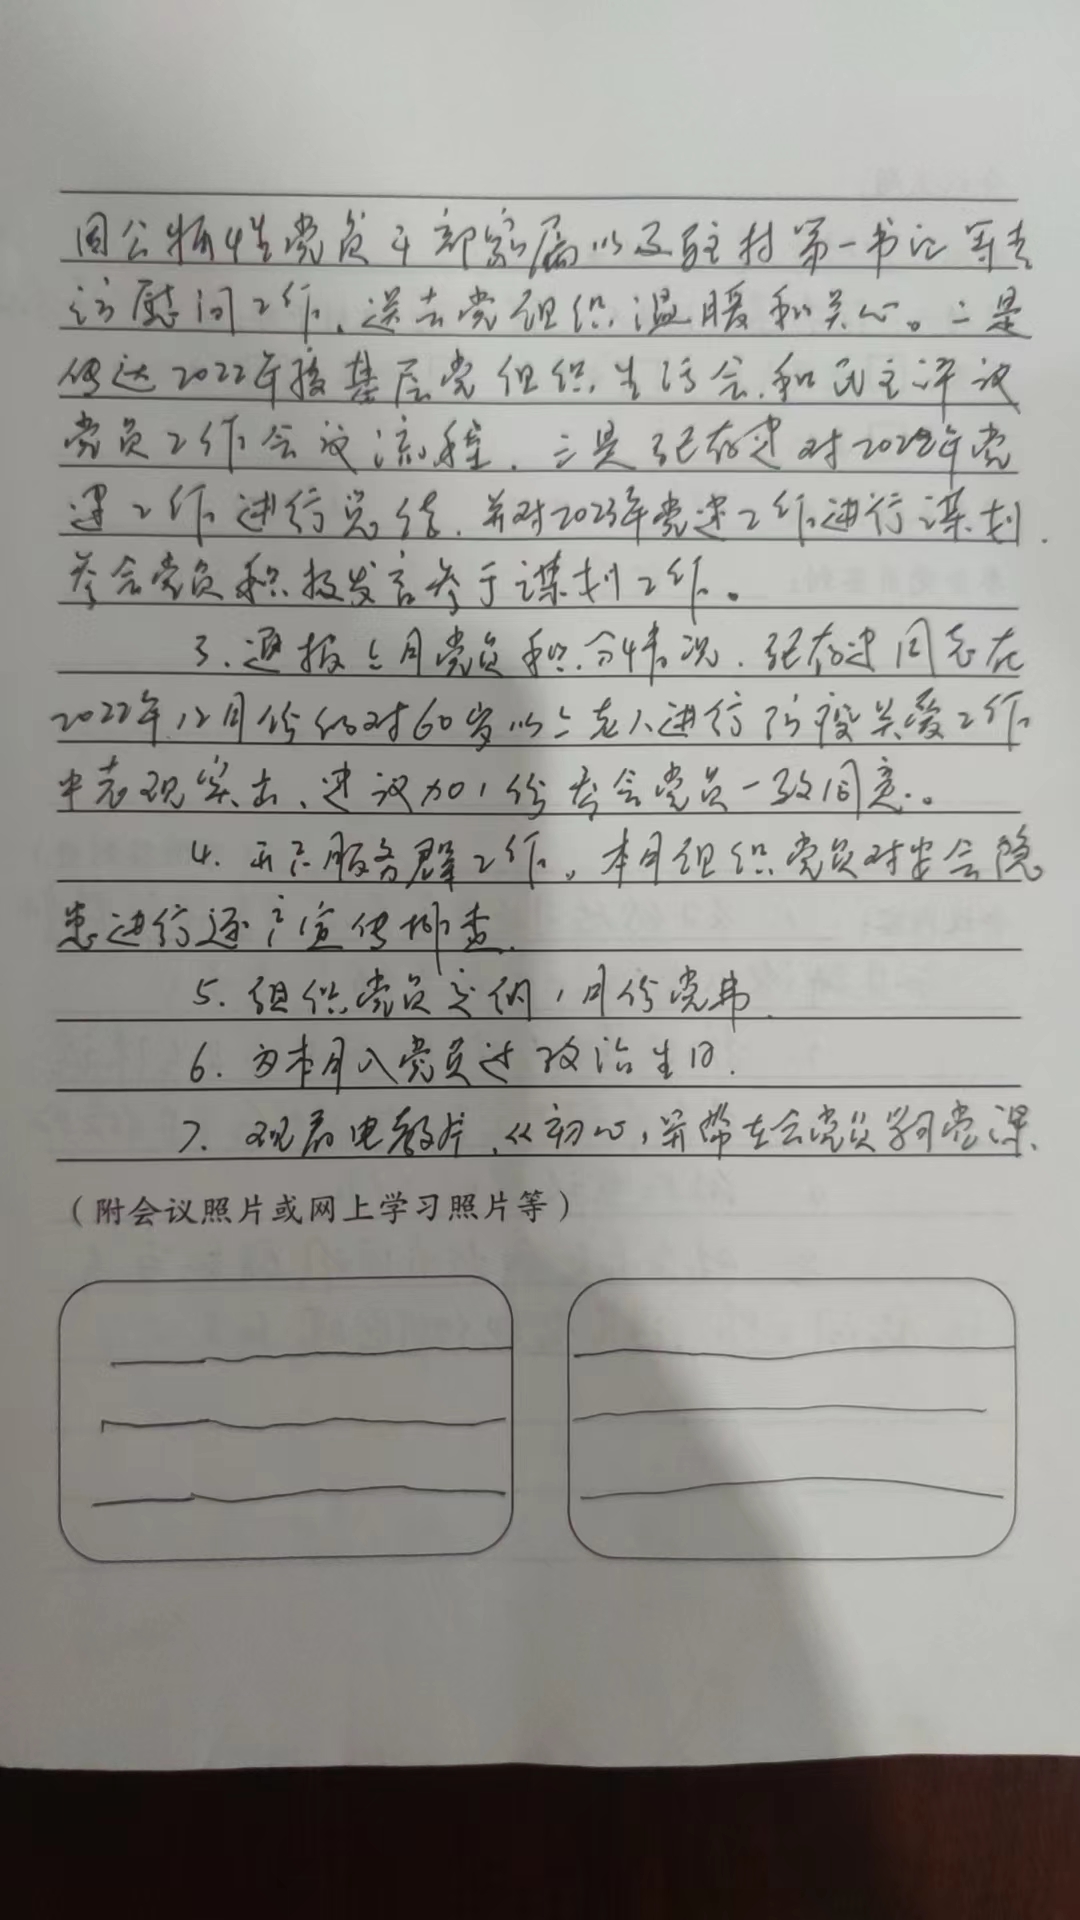 因公牺牲党员干部家属以及驻村第一书记等走
访慰问工作、送去党组织温暖和关心。二是
传达2022年度基层党组织生活会和民主评议
党员工作会议流程、三是张存建对2022年党
建工作进行总结、并对2023年党建工作进行谋划、
参会党员积极发言参于谋划工作。
3、通报上月党员积分情况、张存建同志在
2022年12月份的对60岁以上老人进行防疫关爱工作
中表现突出、建议加1份参会党员一致同意。
4、开户服务群工作。本月组织党员对安会隐
患进行逐户宣传排查、
5、组织党员交纳1月份党弗、
6、为本月入党员过政治生日、
7、观看电教片、《初心,并带在会党员学习党课、
（附会议照片或网上学习照片等）